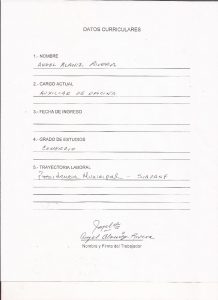 DATOS CURRICULARES
1.- NOMBRE
ANGEL ALANIZ RIVERA
2.- CARGO ACTUAL
AUXILIAR DE OFICINA
3.- FECHA DE INGRESO
4.- GRADO DE ESTUDIOS
COMERCIO
5.- TRAYECTORIA LABORAL
PRESIDENCIA MUNICIPAL -
Angel Alaniz Rivera
Nombre y Firma del Trabajador